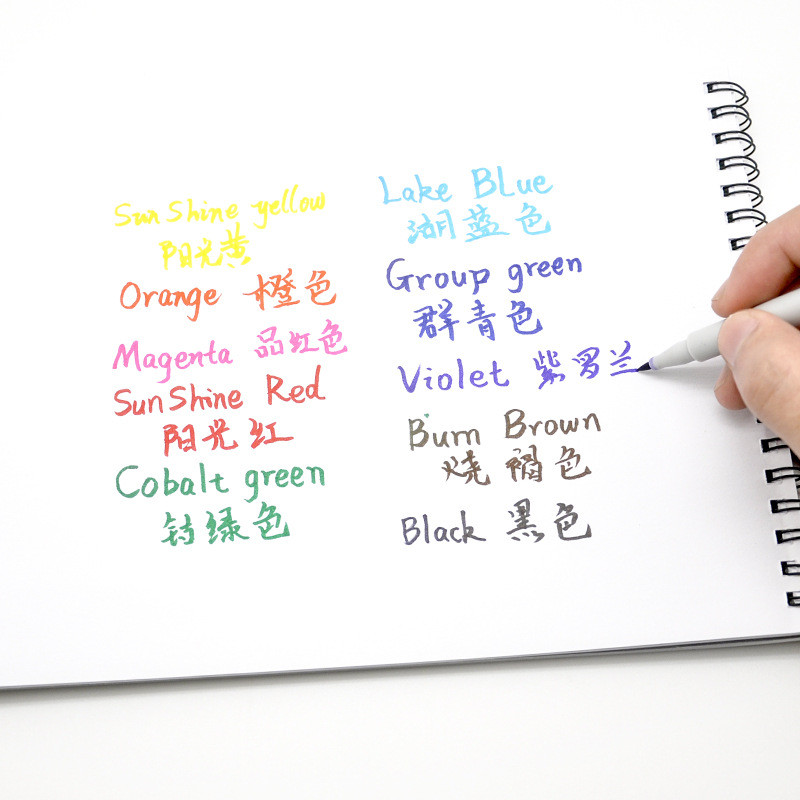 Sunshine yellow
阳光黄
Orange 橙色
Magenta 品红色
SunShine Red
阳光红
Cobalt green
钴绿色
Lake Blue
湖蓝色
Group green
群青色
Violet 紫罗兰
Burn Brown
烧褐色
Black 黑色